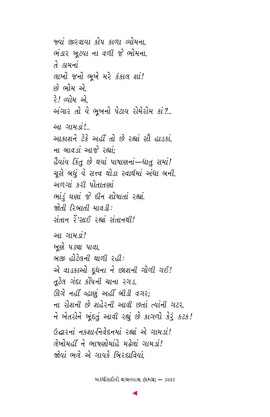 જ્યાં જીરવાયા કોપ કાળા વ્યોમના,
ભંડાર ખૂટવા ના વળી જે ભોમના,
તે ઠામનાં
લાખો જનો ભૂખે મરે કંકાલ શાં!
છે ભોમ એ,
રે! વ્યોમ એ,
અંગાર તો યે ભૂખનો પેટાવ રોમેરોમ કાં?...
આ ગામડાં!...
આકાશને ટેકે અહીં તો છે રહ્યાં સૌ હાડકાં,
ના બાવડાં આજે રહ્યાં;
હૈયાંય કિંતુ છે થયાં પાષાણનાં—ધાતુ સમાં!
ચૂસે બધું યે સત્ત્વ થોડા સ્વાર્થમાં અંધા બની,
અળગાં કરી પોતાતણાં
ભાંડું ઘણાં જે દીન શોષાતાં રહ્યાં.
જોતી રિબાતી માવડી:
સંતાન રૅં'સાઈ રહ્યાં સંતાનથી!
આ ગામડાં!
ખૂણે પડ્યા પાવા,
બજી હોટેલની થાળી રહી:
એ વાડકાઓ દૂધના ને છાશની ગોળી ગઈ!
તૂટેલ ગંદા કૉપની ચાના રગડ,
ઊગે નહીં વ્હાણું અહીં બીડી વગર;
ના રોશની છે શહેરની આવી છતાં ત્યાંની ગટર,
ને ખેતરોને ખૂંદતું આવી રહ્યું છે કાગળો કેરું કટક!
ઉદ્ધારનાં નકશા-નિવેદનમાં રહ્યાં એ ગામડાં!
લેખોમહીં ને ભાષણોમાંહે મઢેલાં ગામડાં!
જોવાં ભલે એ ગાયકે બિરદાવિયાં,